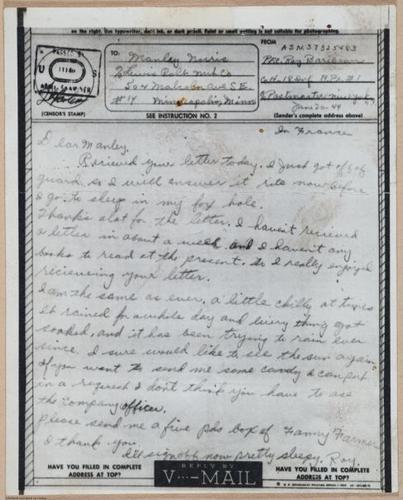 on the right. Use typewriter, dark ink, or dark pencil. Faint or small writing is not suitable for photographing.
PASSED BY
U S
ARMY EXAMINER
(CENSOR'S STAMP)
TO:
Manley Norris
% Lewis Bolt Nut Co
504 Malcolm ave S.E.
#14 Minneapolis, Minn
SEE INSTRUCTION NO. 2
FROM
A.S.N 37525483
Pvt. Roy
% Postmaster New York
June 20-44
(Sender's complete address above)
In France
Dear Manley.
Recieved your letter today. I just got off of
guard so I will answer it rite now before
I go to sleep in my fox hole.
Thanks alot for the letter. I havent recieved
a letter in about a week and I havent any
books to read at the present. So I really enjoyed
recieveing your letter.
I am the same as ever, a little chilly at times
it rained for a whole day and every thing got
soaked, and it has been trying to rain ever
since. I sure would like to see the sun again.
If you want to send me some candy I can put
in a request I don't think you have to ask
the company officer.
Please send me a five pds box of Fanny Farmer
I thank you
I'll sign off now pretty sleepy. Roy.
HAVE YOU FILLED IN COMPLETE
ADDRESS AT TOP?
REPLY BY
V···-MAIL
HAVE YOU FILLED IN COMPLETE
ADDRESS AT TOP?